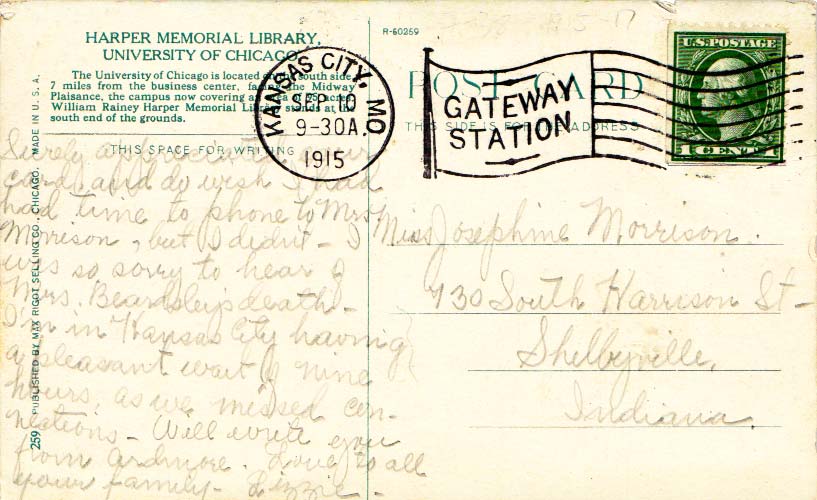 HARPER MEMORIAL LIBRARY,
UNIVERSITY OF CHICAGO
The University of Chicago is located on the south side,
7 miles from the business center, facing the Midway
Plaisance, the campus now covering an area of 95 acres.
William Rainey Harper Memorial Library stands at the
south end of the grounds.
THIS SPACE FOR WRITING
R-60259
POST CARD
THIS SIDE IS FOR THE ADDRESS
KANSAS CITY, MO
SEP 10
9-30A.
1915
GATEWAY
STATION
U.S. POSTAGE
1 CENT 1
MADE IN U.S.A.
259 PUBLISHED BY MAX RIGOT SELLING CO., CHICAGO.
Surely appreciate your
card, and do wish I had
had time to phone to Mrs
Morrison, but I didn't - I
was so sorry to hear of
Mrs. Beardsley's death -
I'm in Kansas City having
a pleasant wait of nine
hours, as we missed con-
nections - Will write you
from Ardmore. Love to all
your family - Lizzie -
Miss Josephine Morrison.
730 South Harrison St -
Shelbyville,
Indiana.